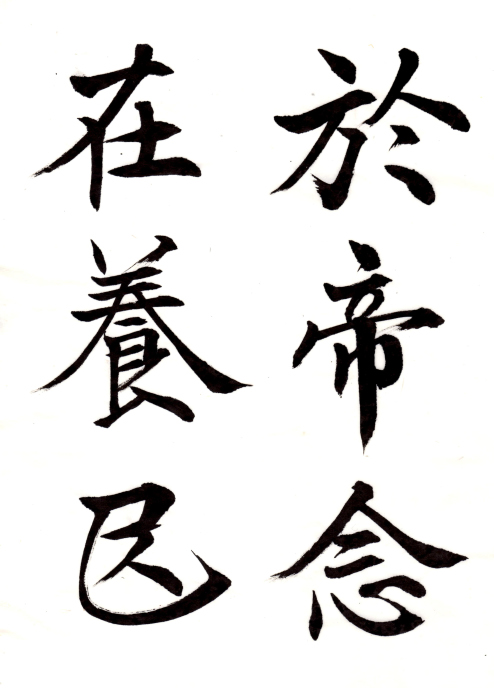 於帝念
在養民